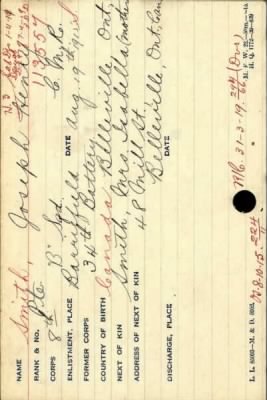 NAME Smith, Joseph Henry
RANK & No. Pte. 113557
CORPS 8th "B" Sqd. C. M. R.
ENLISTMENT, PLACE Barriefield DATE Aug. 9th 1915
FORMER CORPS 34th Battery
COUNTRY OF BIRTH Canada Belleville Ont.
NEXT OF KIN Smith, Mrs. Isabella (mother)
ADDRESS OF NEXT OF KIN 48 Mill St.
Belleville Ont, Can
DISCHARGE, PLACE DATE
N/K. 31-3-19
M. 8.10.15-224